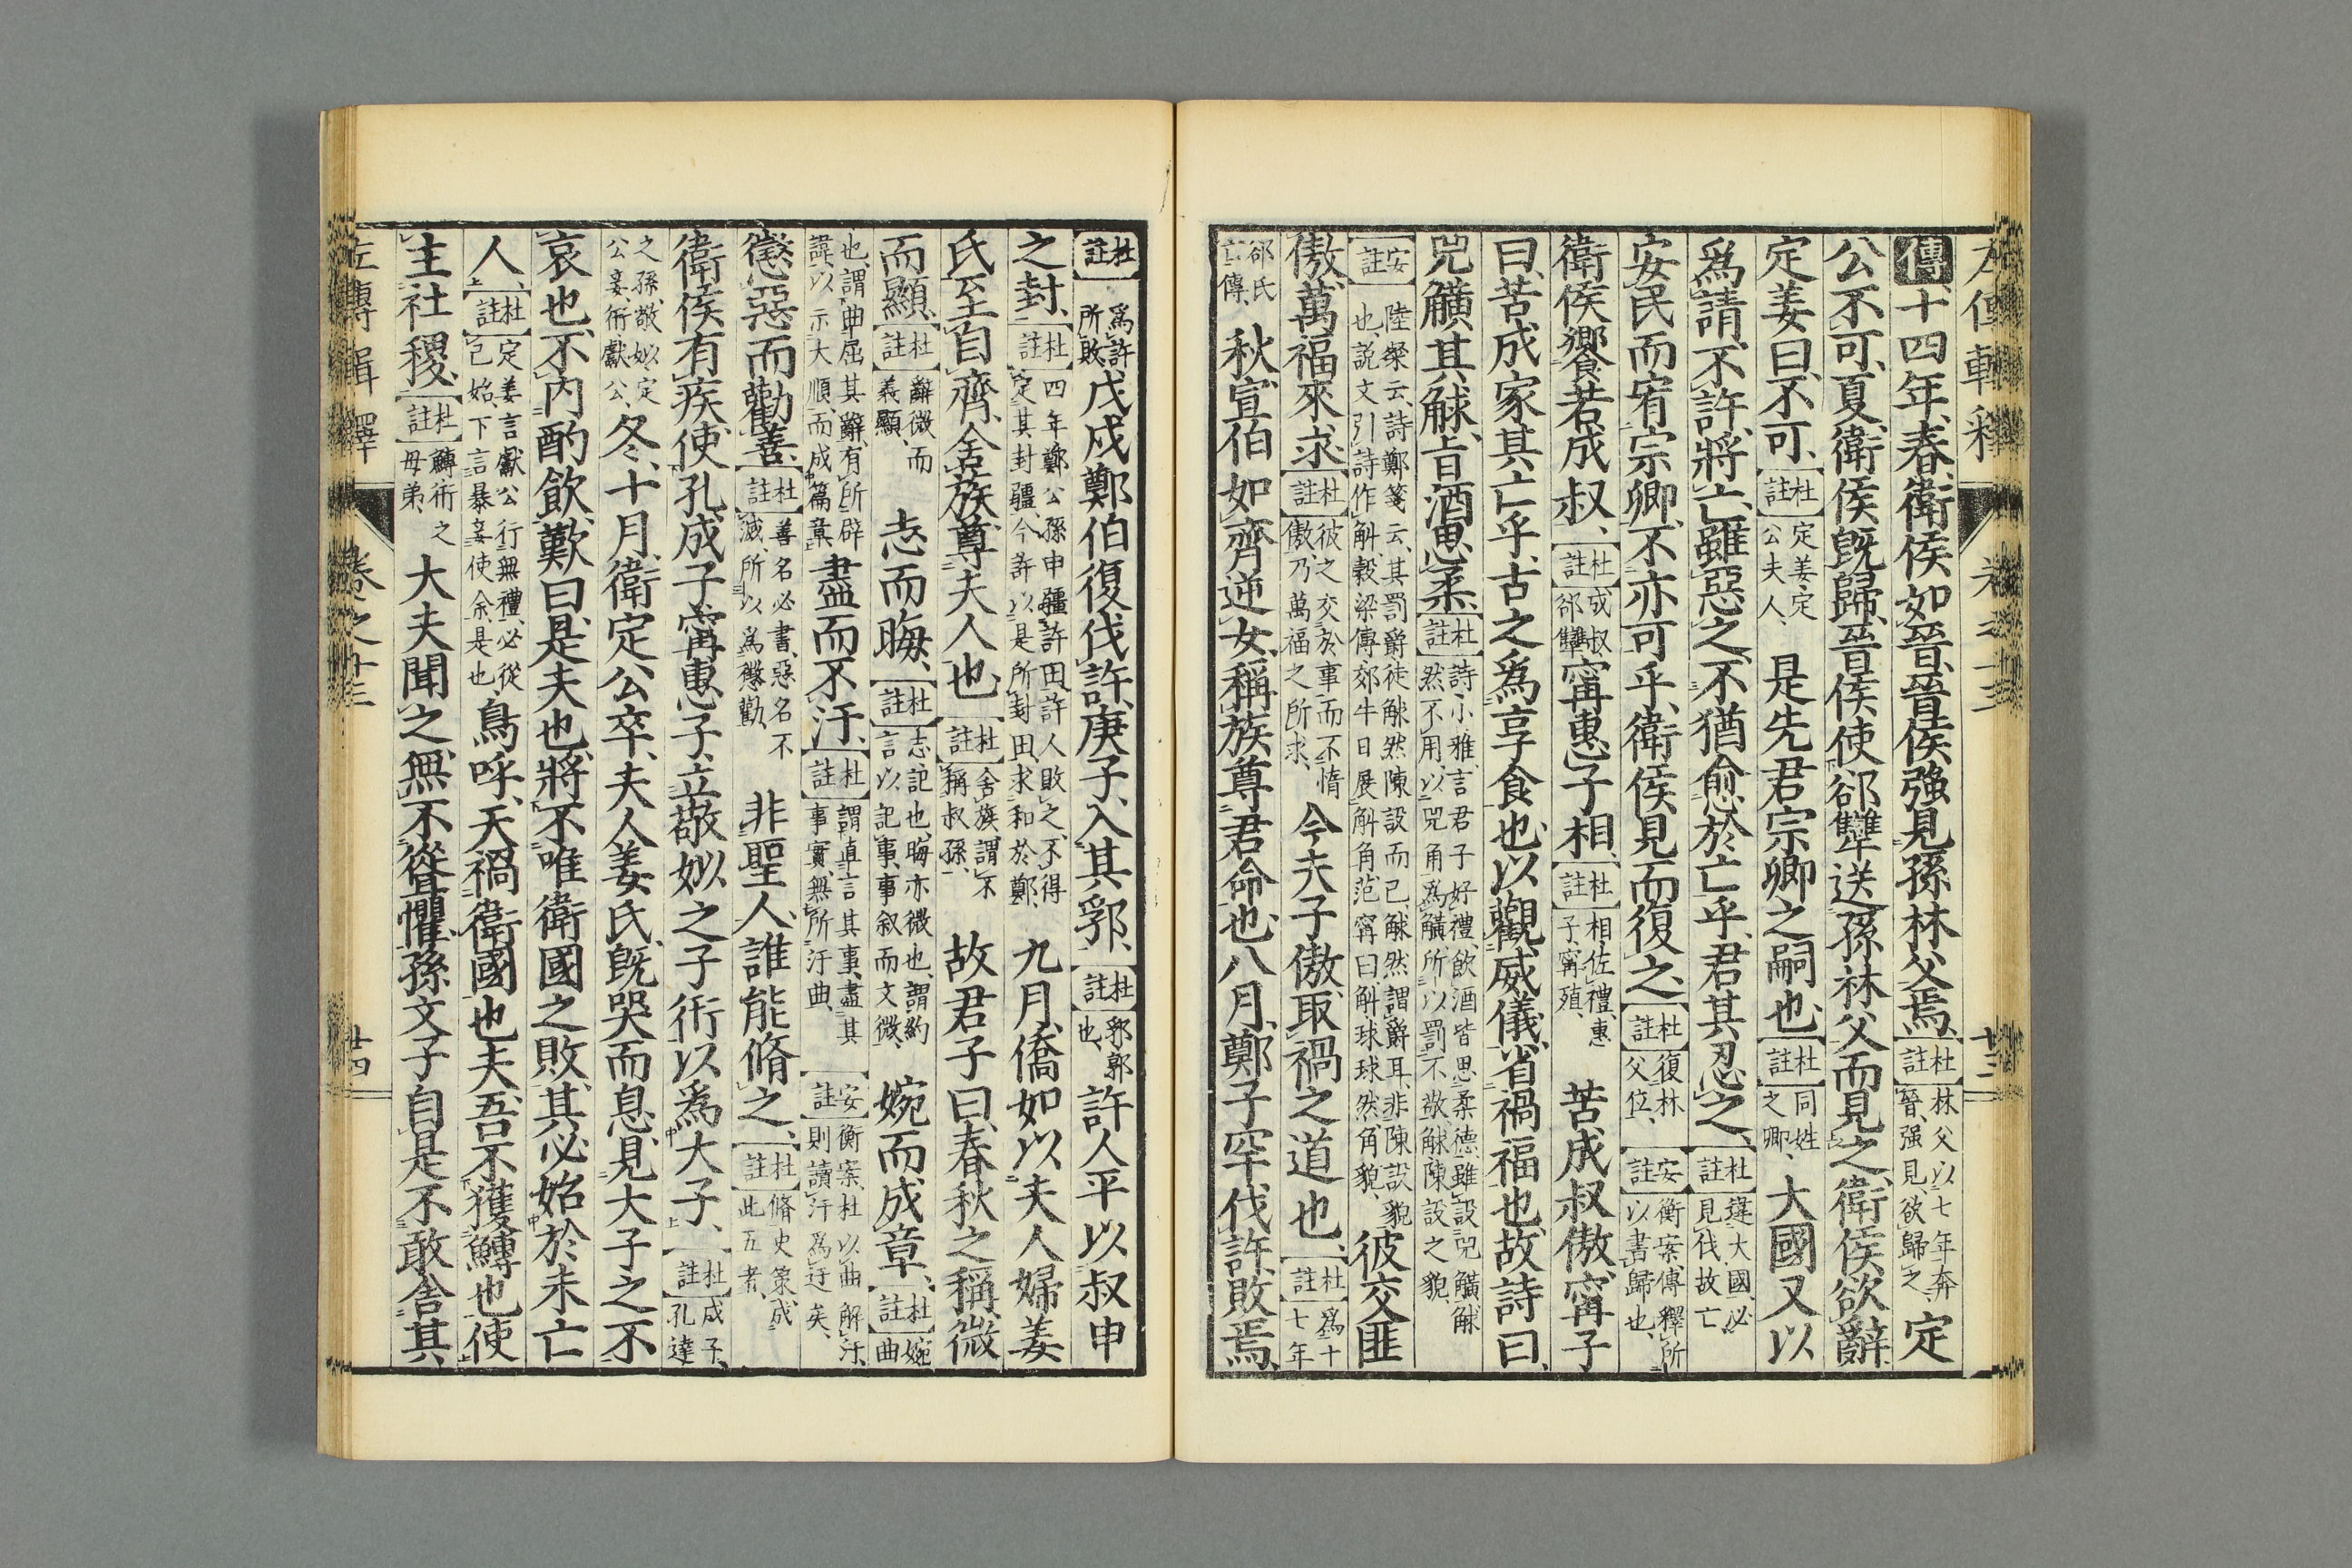 傳十四年、春、衛侯如晉、晉侯強見孫林父焉、【杜註】林父以七年奔晉、强見、欲歸之、定
公不可、夏、衛侯既歸、晉侯使郤犫送孫林父而見之、衛侯欲辭、
定姜曰、不可、【杜註】定姜定公夫人、是先君宗卿之嗣也、【杜註】同姓之卿、大國又以
爲請、不許、將亡、雖惡之、不猶愈於亡乎、君其忍之、【杜註】違大國、必見伐故亡、
安民而宥宗卿、不亦可乎、衛侯見而復之、【杜註】復林父位、【安註】衡案、傳釋所以書歸也、
衛侯饗苦成叔、【杜註】成叔郤犫甯惠子相、【杜註】相、佐禮、惠子、甯殖、苦成叔傲、甯子
曰、苦成家其亡乎、古之爲享食也、以觀威儀、省禍福也、故詩曰、
兕觵其觩、旨酒思柔、【杜註】詩小雅、言君子好禮、飲酒皆思柔德、雖設兕觵、觩然不用、以兕角爲觵、所以罰不敬、觩、陳設之貌、
【安註】陸粲云、詩鄭箋云、其罰爵徒觩然陳設而已、觩然謂爵耳、非陳設貌也、説文引詩作斛、穀梁傳郊牛日展斛角、范甯曰、斛、球球然、角貌、彼交匪
傲、萬福來求、【杜註】彼之交於事而不惰傲、乃萬福之所求、今夫子傲、取禍之道也、【杜註】爲十七年
郤氏亡傳、秋、宣伯如齊逆女、稱族、尊君命也、八月、鄭子罕伐許、敗焉、
【杜註】爲許所敗、戊戌、鄭伯復伐許、庚子、入其郛、【杜註】郛郭也、許人平以叔申
之封、【杜註】四年鄭公孫申疆許田、許人敗之、不得定其封疆、今許以是所封田、求和於鄭、九月、僑如以夫人婦姜
氏至自齊、舍族、尊夫人也、【杜註】舍族、謂不稱叔孫、故君子曰、春秋之稱、微
而顯、【杜註】辭微而義顯、志而晦、【杜註】志、記也、晦亦微也、謂約言以記事、事叙而文微、婉而成章、【杜註】婉曲
也、謂曲屈其辭、有所辟諱、以示大順、而成篇章、盡而不汙、【杜註】謂直言其事、盡其事實、無所汙曲、【安註】衡案、杜以曲解汙、則讀汙爲迂矣、
懲惡而勸善、【杜註】善名必書、惡名不滅、所以爲懲勸、非聖人、誰能脩之、【杜註】脩史策、成此五者、
衛侯有疾、使孔成子甯惠子、立敬姒之子衎以爲大子、【杜註】成子、孔達
之孫、敬姒、定公妾、衎獻公、冬、十月、衛定公卒、夫人姜氏既哭而息、見大子之不
哀也、不內酌飲、歎曰、是夫也、將不唯衛國之敗、其必始於未亡
人、【杜註】定姜言獻公行無禮、必從己始、下言暴妾使余、是也、烏呼、天禍衛國也夫、吾不獲鱄也使
主社稷、【杜註】鱄衎之母弟、大夫聞之、無不聳懼、孫文子自是不敢舍其
左傳輯釋 卷之十三 廿四